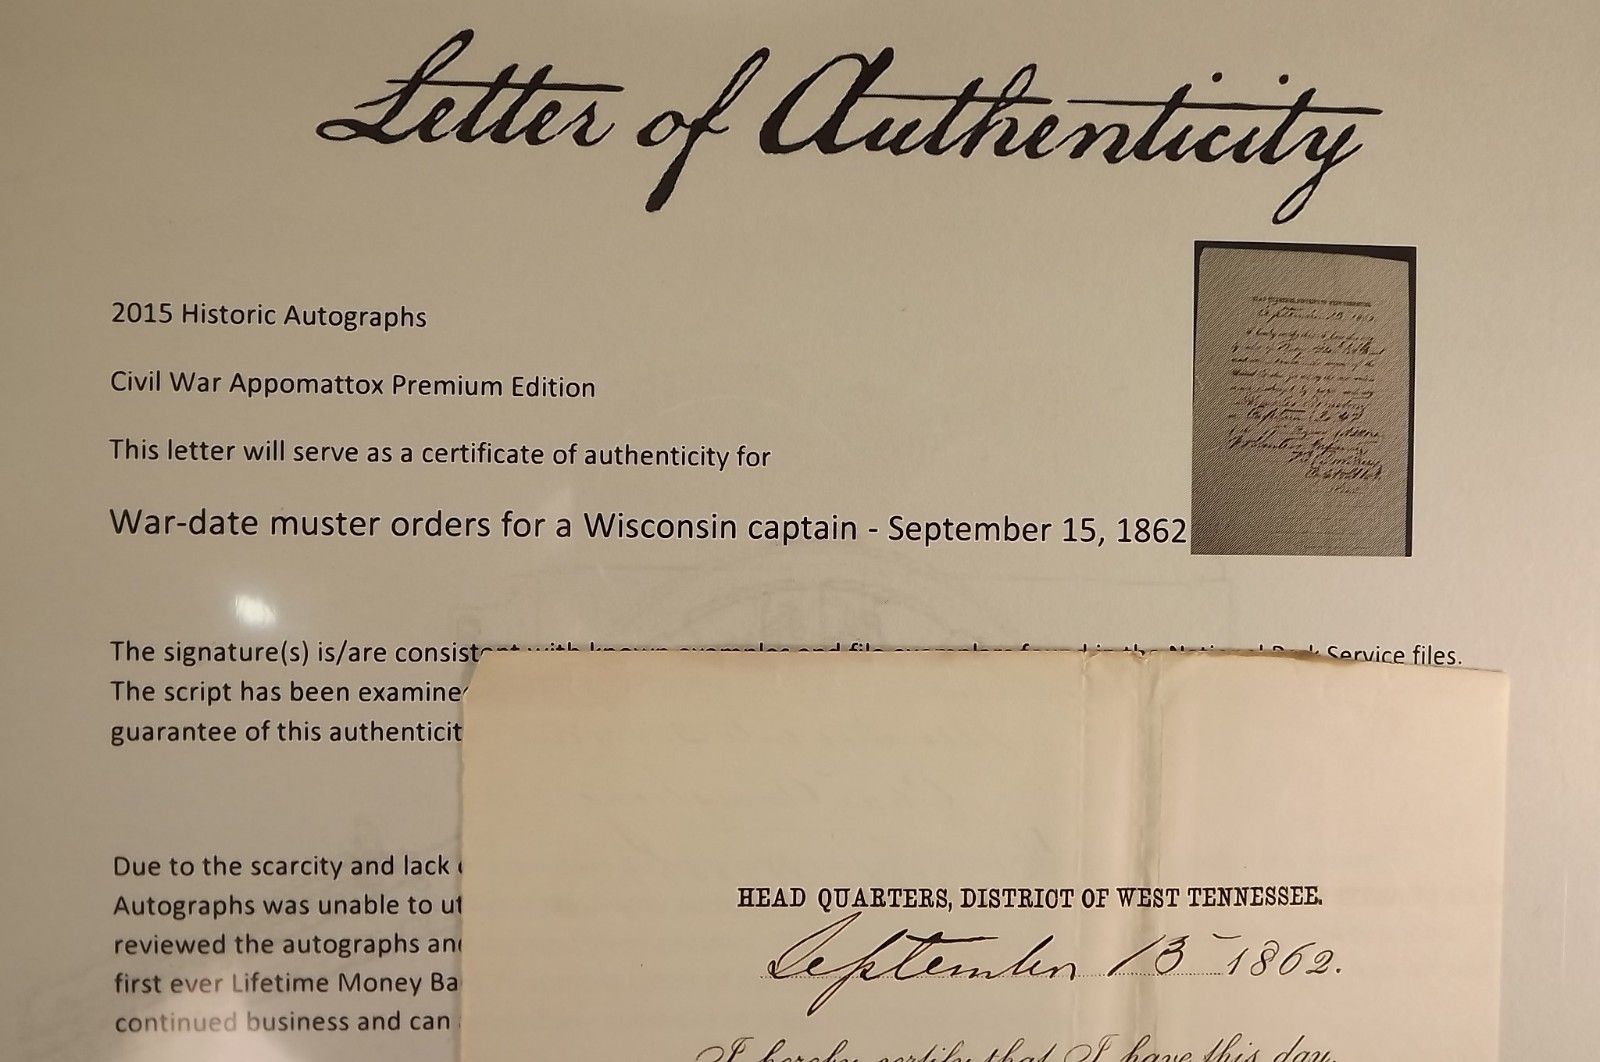 Letter of Authenticity
2015 Historic Autographs
Civil War Appomattox Premium Edition
This letter will serve as a certificate of authenticity for
War-date muster orders for a Wisconsin captain - September 15, 1862
The signature(s) is/are consistent with known examples and file exemplars found in the National Park Service files.
The script has been examine
guarantee of this authenticit
Due to the scarcity and lack
Autographs was unable to ut
reviewed the autographs an
first ever Lifetime Money Ba
continued business and can
HEAD QUARTERS, DISTRICT OF WEST TENNESSEE.
September 15 1862.
I hereby certify that I have this day,